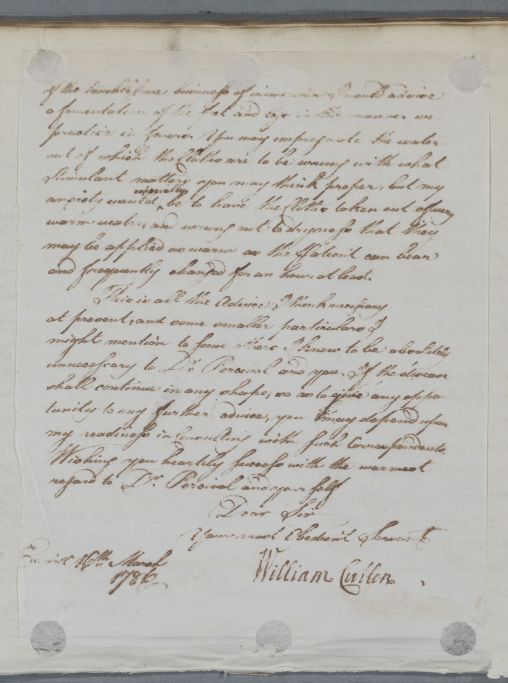 of the troublesome business of immersion I would advise
a fomentation of the feet and legs in the manner we
practise in fevers. You may impregnate the water
out of which the Cloths are to be wrung with what
Stimulant matters you may think proper, but my
anxiety would especially be to have the Cloths taken out of very
warm water, and wrung out to dryness that they
may be applied as warm as the Patient can bear
and frequently changed for an hour at least.
This is all the Advice I think necessary
at present, and some smaller particulars I
might mention to some others I know to be absolutely
unnecessary to Dr. Percival and you. If the disease
shall continue in any shape, so as to give any oppor
tunity to my further advice, you may depend upon
my readiness in consulting with such Correspondents.
Wishing you heartily success with the warmest
regard to Dr. Percival and your self
Dear Sir
Your most Obedient Servant
16th. March
1786
William Cullen